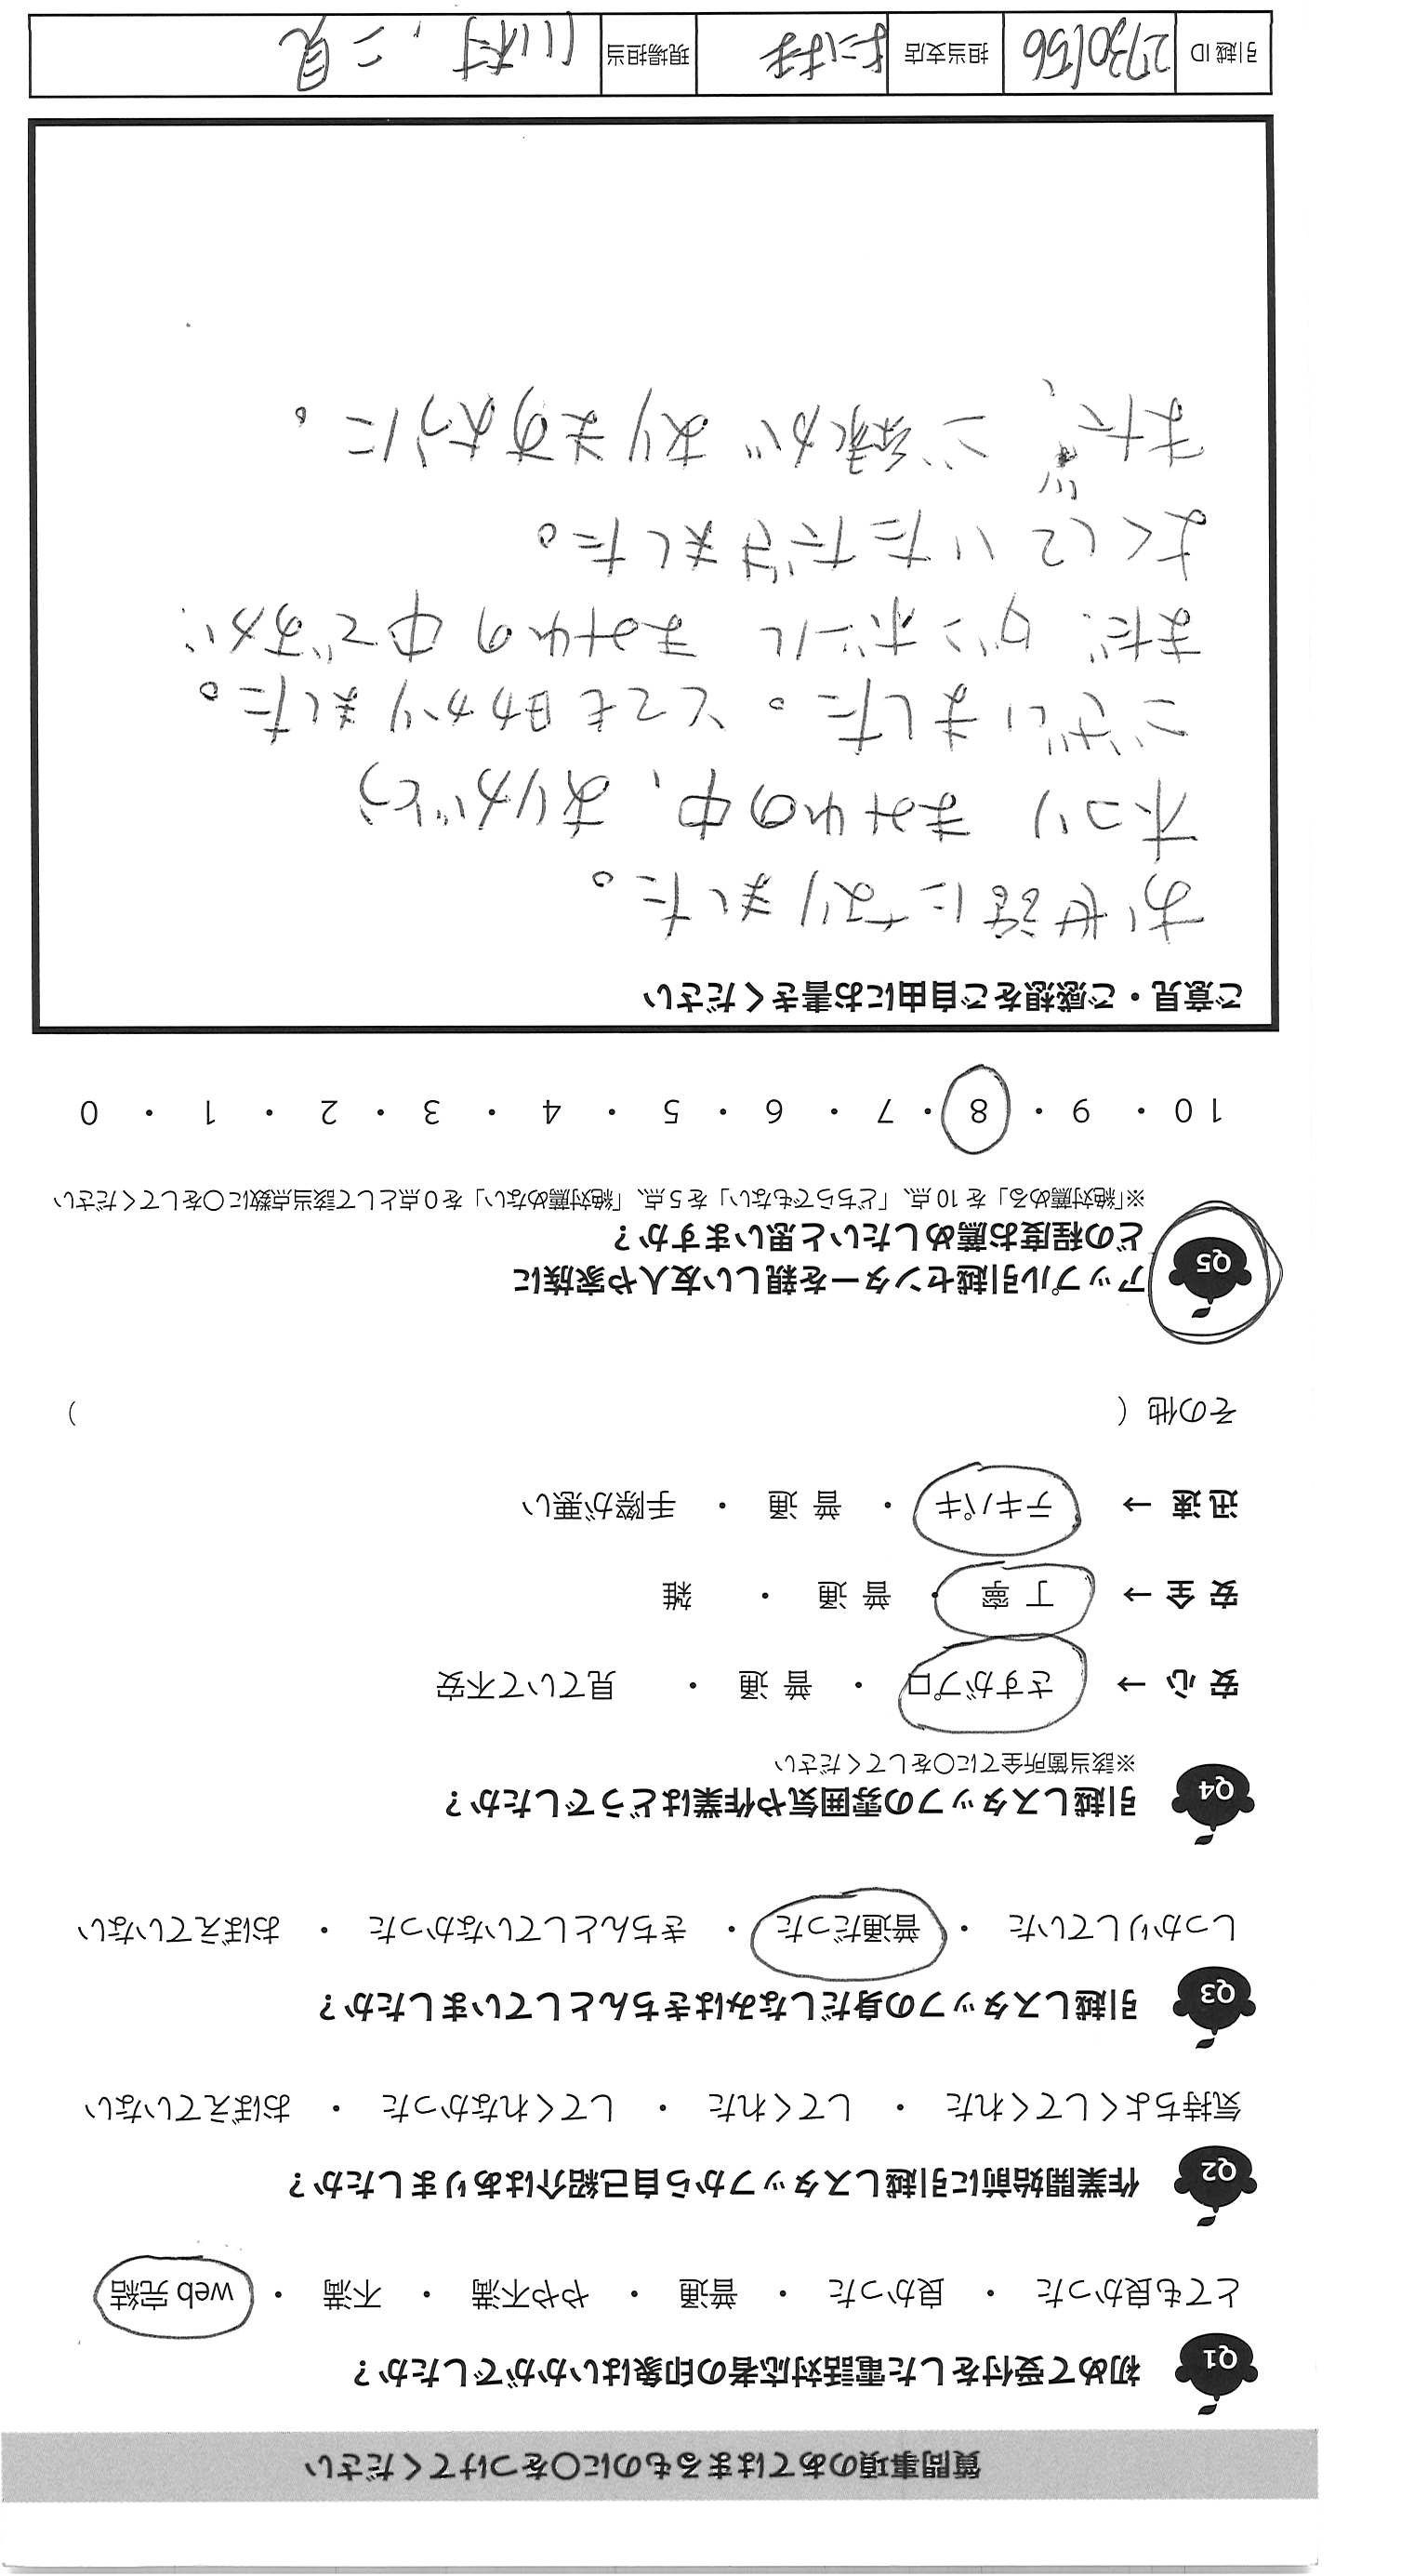 質問事項のあてはまるものに○をつけてください
Q1 初めて受付をした電話対応者の印象はいかがでしたか？
とても良かった ・ 良かった ・ 普通 ・ やや不満 ・ 不満 ・ web 完結
Q2 作業開始前に引越しスタッフから自己紹介はありましたか？
気持ちよくしてくれた ・ してくれた ・ してくれなかった ・ おぼえていない
Q3 引越しスタッフの身だしなみはきちんとしていましたか？
しっかりしていた ・ 普通だった ・ きちんとしていなかった ・ おぼえていない
Q4 引越しスタッフの雰囲気や作業はどうでしたか？
※該当箇所全てに○をしてください
安心 → さすがプロ ・ 普通 ・ 見ていて不安
安全 → 丁寧 ・ 普通 ・ 雑
迅速 → テキパキ ・ 普通 ・ 手際が悪い
その他（ ）
Q5 アップル引越センターを親しい友人や家族に
どの程度お薦めしたいと思いますか？
※「絶対薦める」を10点、「どちらでもない」を5点、「絶対薦めない」を0点として該当点数に○をしてください
10 ・ 9 ・ 8 ・ 7 ・ 6 ・ 5 ・ 4 ・ 3 ・ 2 ・ 1 ・ 0
ご意見・ご感想をご自由にお書きください
お世話になりました。
ホコリまみれの中、ありがとう
ございました。とても助かりました。
まだ、ダンボールまみれの中ですが、
よくしていただきました。
また、ご縁がありますように。
引越ID 2730156 担当支店 よこはま 現場担当 川村、二見